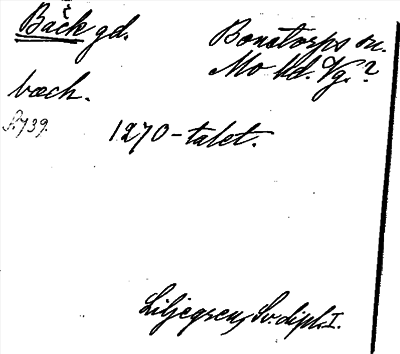 Bäck gd.
Bonstorps sn.
Mo hd. Vg.?
bæch.
S. 739.
1270-talet.
Liljegren, Sv. dipl. I.